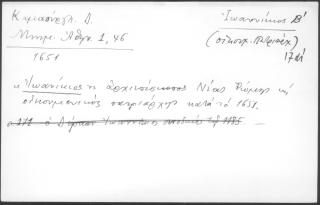 Καμπούρογλ. Δ.
Μνημ. Αθην. 1, 46
1651
Ἰωαννίκιος Β'
(οἰκουμ. Πατριάρχ)
17 αἰ
κ Ἰωανίκιος ἀρχιεπίσκοπος Νέας Ῥώμης κὴ
οἰκουμενικὸς πατριάρχης κατὰ τὸ 1651.